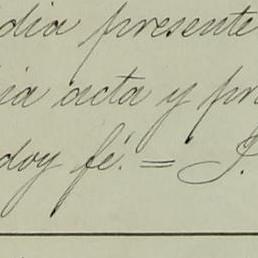 dia presente
ia acta y pr
doy fé. =